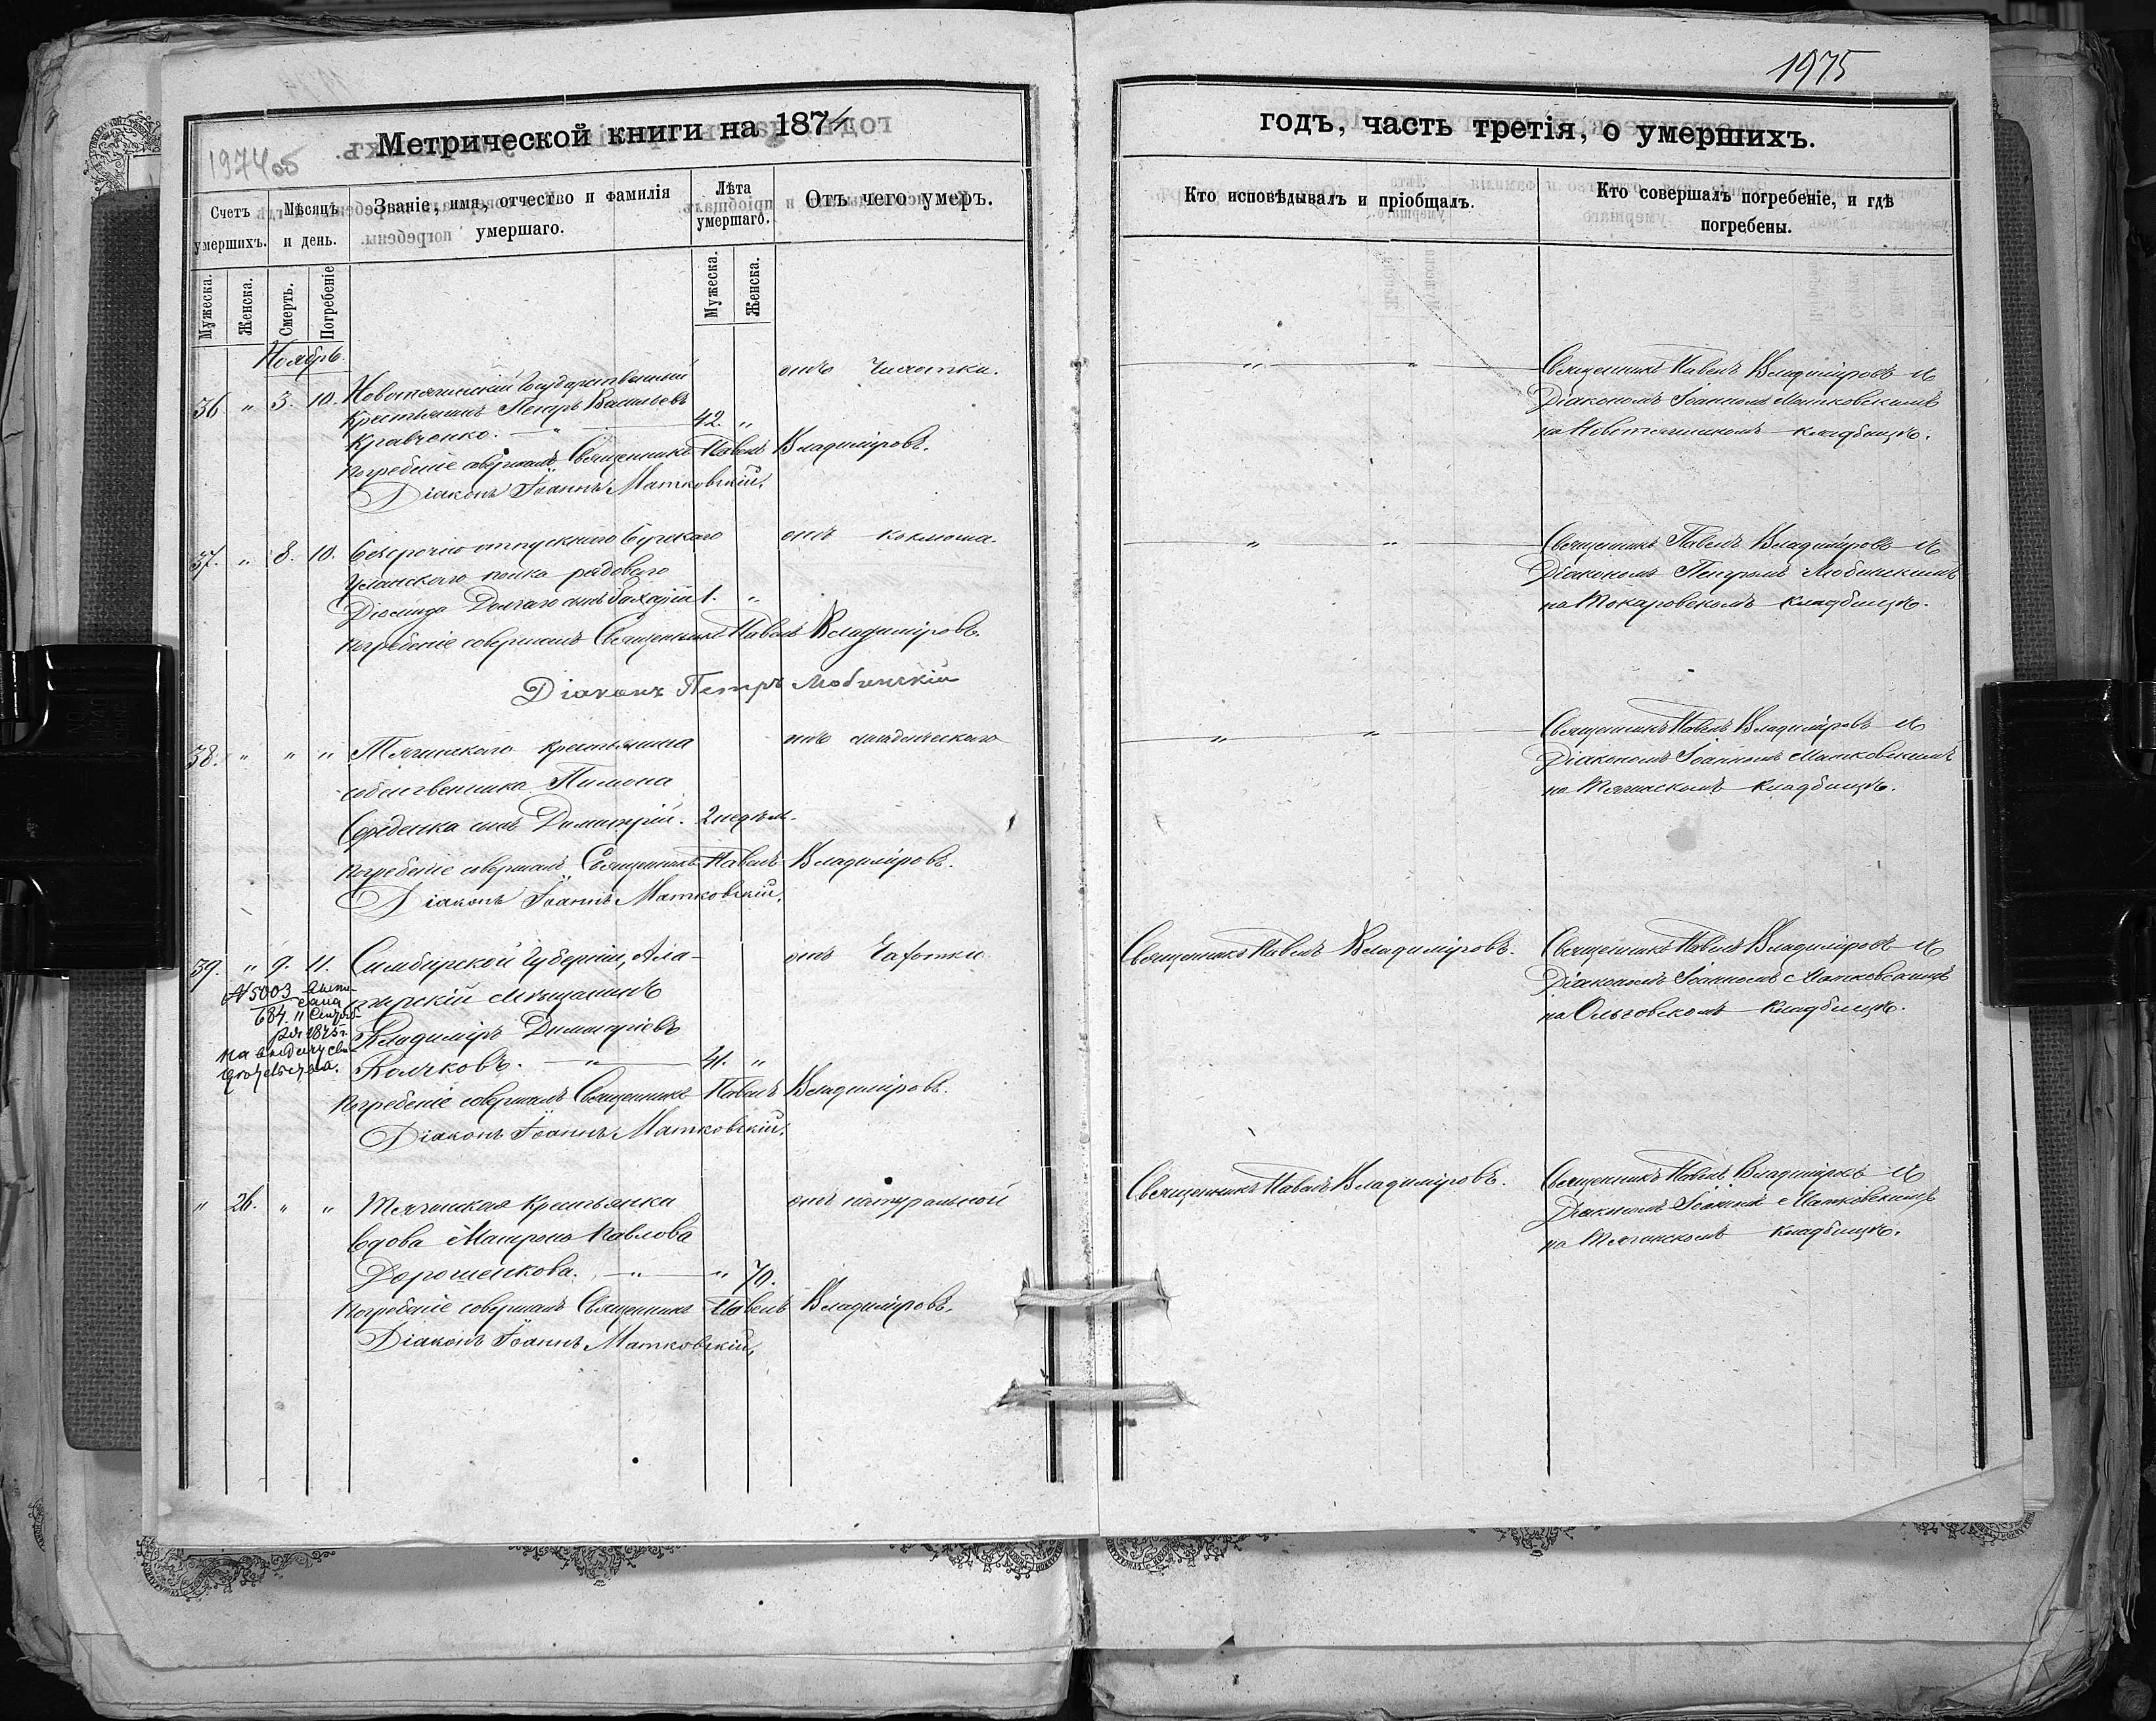 1975
1974 об
Метрической книги на 1874
годъ, часть третія, о умершихъ.
Счетъ умершихъ.
Мѣсяцъ и день.
Званіе, имя, отчество и фамилія умершаго.
Лѣта умершаго.
Отъ чего умеръ.
Кто исповѣдывалъ и пріобщалъ.
Кто совершалъ погребеніе, и гдѣ погребены.
Мужеска.
Женска.
Смерть.
Погребеніе
Мужеска.
Женска.
Ноябрь.
36. " 3. 10. Новотягинскій Государственный
Крестьянинъ Петръ Васильевъ
Кравченко. — " — 42. "
отъ Чахотки.
Священникъ Павелъ Владиміровъ и
Діакономъ Іоанномъ Матковскимъ
на Новотягинскомъ кладбищѣ.
Погребеніе совершалъ Священникъ Павелъ Владиміровъ.
Діаконъ Іоаннъ Матковскій.
37. " 8. 10. Безсрочно отпускнаго Бугскаго
Уланскаго полка рядоваго
Діомида Долгаго сынъ 1. "
отъ коклюша.
Священникъ Павелъ Владиміровъ и
Діакономъ Петромъ Любинскимъ
на Токаровскомъ кладбищѣ.
Погребеніе совершалъ Священникъ Павелъ Владиміровъ.
Діаконъ Петръ Любинскій
38. " " " Тягинскаго крестьянина
собственника Пимона
Середенка сынъ Димитрій. 2 недѣль.
отъ младенческаго
Священникъ Павелъ Владиміровъ и
Діакономъ Іоанномъ Матковскимъ
на Тягинскомъ кладбищѣ.
Погребеніе совершалъ Священникъ Павелъ Владиміровъ.
Діаконъ Іоаннъ Матковскій.
39. " 9. 11. Симбирской Губерніи, Ала-
тырскій Мѣщанинъ
Владиміръ Димитріевъ
— " — 41. "
отъ Чахотки
№ 5003
684. "
1875 г.
на выдачу
Священникъ Павелъ Владиміровъ.
Священникъ Павелъ Владиміровъ и
Діакономъ Іоанномъ Матковскимъ
на Ольговскомъ кладбищѣ.
Погребеніе совершалъ Священникъ Павелъ Владиміровъ.
Діаконъ Іоаннъ Матковскій.
" 26. " " Тягинская крестьянка
вдова Матрона Павлова
Дорошенкова. — " — " 70.
отъ натуральной
Священникъ Павелъ Владиміровъ.
Священникъ Павелъ Владиміровъ и
Діакономъ Іоанномъ Матковскимъ
на Тягинскомъ кладбищѣ.
Погребеніе совершалъ Священникъ Павелъ Владиміровъ.
Діаконъ Іоаннъ Матковскій.